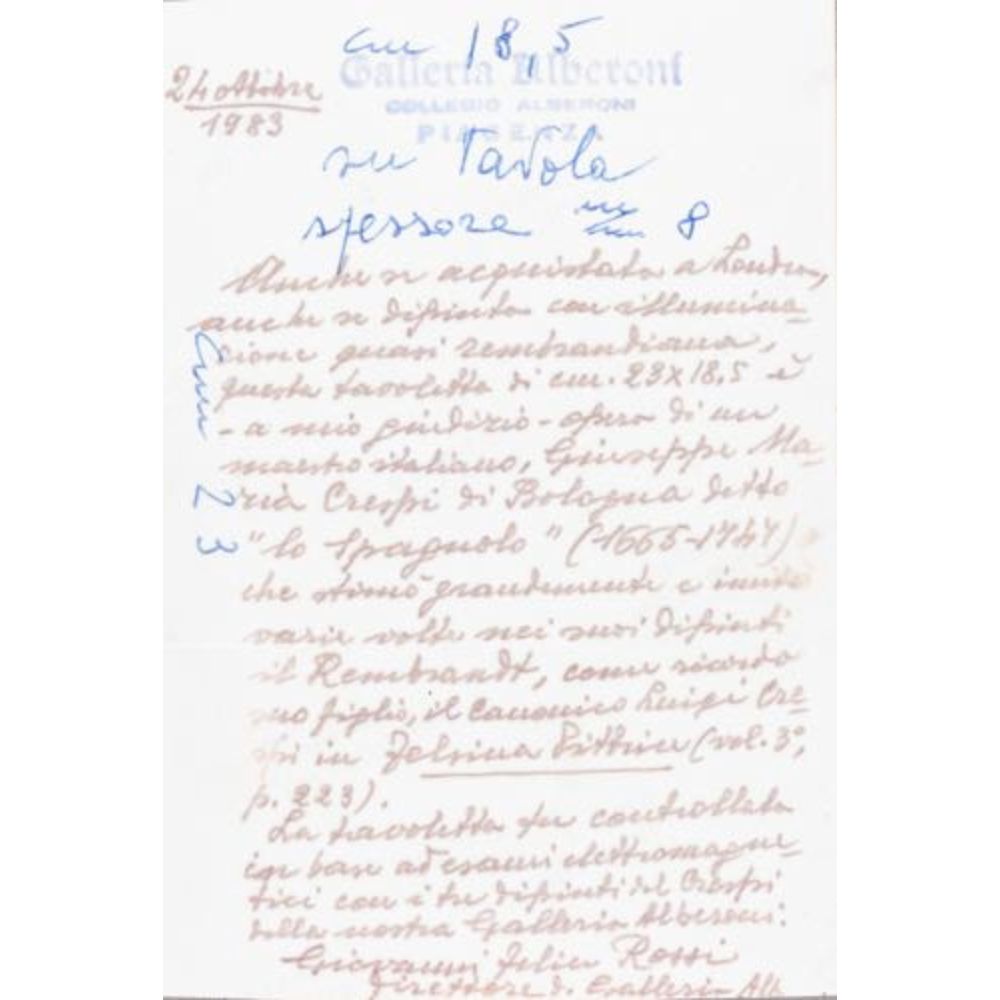 cm 18,5
Galleria Alberoni
COLLEGIO ALBERONI
PIACENZA
24 ottobre
1983
su Tavola
spessore mm 8
cm 23
Anche se acquistata a Londra,
anche se dipinta con illumina-
zione quasi rembrandiana,
questa tavoletta di cm. 23x18,5 è
- a mio giudizio - opera di un
maestro italiano, Giuseppe Ma-
ria Crespi di Bologna detto
"lo Spagnolo" (1665-1747)
che stimò grandemente e imitò
varie volte nei suoi dipinti
il Rembrandt, come ricorda
suo figlio, il canonico Luigi Cre-
spi in Felsina Pittrice (vol. 3°,
p. 223).
La tavoletta fu controllata
in base ad esami elettromagne-
tici con i tre dipinti del Crespi
della nostra Galleria Alberoni.
Giovanni Felice Rossi
Direttore d. Galleria Alb